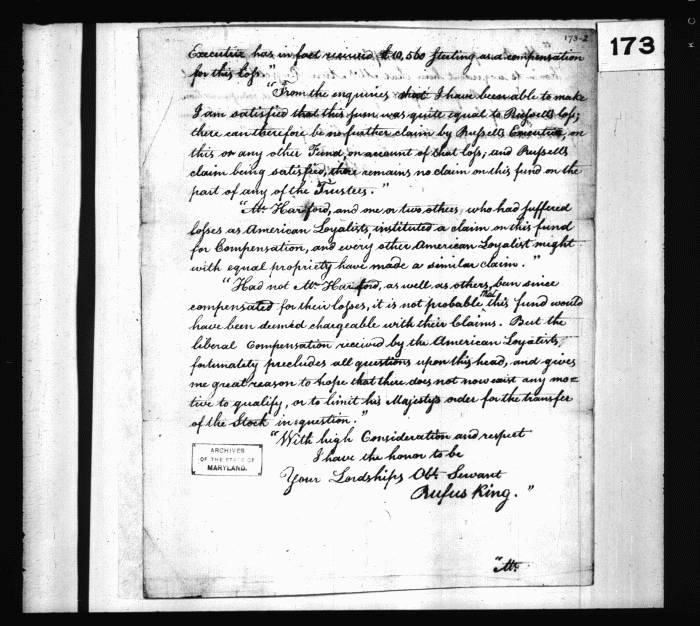 173-2
173
Executrix has in fact received £10,500 Sterling as a compensation
for this loss."
"From the enquiries that I have been able to make
I am satisfied that this sum was quite equal to Russell's loss;
there can therefore be no further claim by Russells Executrix, on
this or any other Fund, on account of that loss; and Russells
claim being satisfied, there remains no claim on this fund on the
part of any of the Trustees."
"Mr. Harford, and one or two others, who had suffered
losses as American Loyalists, instituted a claim on this fund
for Compensation, and every other American Loyalist might
with equal propriety have made a similar claim."
"Had not Mr. Harford, as well as others, been since
compensated for their losses, it is not probable that this fund would
have been deemed chargeable with their Claims. But the
liberal Compensation received by the American Loyalists,
fortunately precludes all questions upon this head, and gives
me great reason to hope that there does not now exist any mo=
tive to qualify, or to limit his Majestys order for the transfer
of the Stock in question."
"With high Consideration and respect
I have the honor to be
Your Lordships Obt. Servant
Rufus King."
ARCHIVES
OF THE STATE OF
MARYLAND.
"Mr.